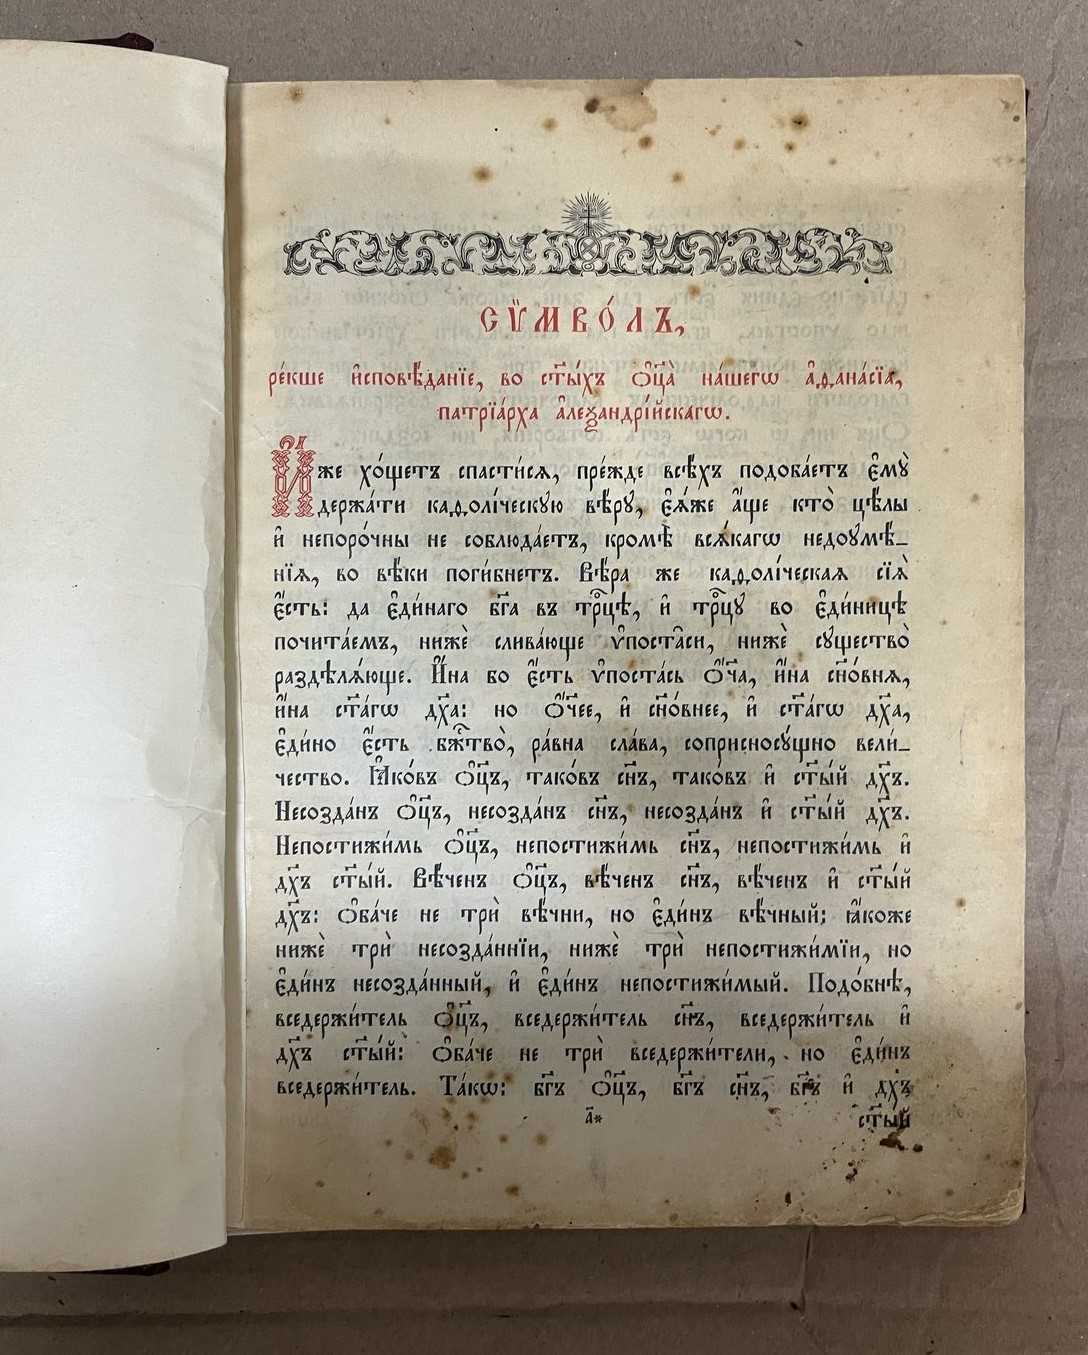 СѶ́МВО́ЛЪ,
ре́кше и҆сповѣ́данїе, во ст҃ы́хъ ѻ҆ц҃а̀ на́шегѡ а҆ѳана́сїа,
патрїа́рха а҆леѯандрі́йскагѡ.
И҆́же хо́щетъ спасти́сѧ, пре́жде всѣ́хъ подоба́етъ є҆мꙋ̀
держа́ти каѳолі́ческꙋю вѣ́рꙋ, є҆ѧ́же а҆́ще кто̀ цѣ́лы
и҆ непоро́чны не соблюда́етъ, кромѣ̀ всѧ́кагѡ недоꙋмѣ́_
нїѧ, во вѣ́ки поги́бнетъ. Вѣ́ра же каѳолі́ческаѧ сїѧ̀
є҆́сть: да є҆ди́наго бг҃а въ трⷪ҇цѣ, и҆ трⷪ҇цꙋ во є҆ди́ницѣ
почита́емъ, нижѐ слива́юще ѵ҆поста̑си, нижѐ сꙋщество̀
раздѣлѧ́юще. И҆́на бо є҆́сть ѵ҆поста́сь ѻ҆́ч҃а, и҆́на сн҃о́внѧ,
и҆́на ст҃а́гѡ дх҃а: но ѻ҆́ч҃ее, и҆ сн҃о́внее, и҆ ст҃а́гѡ дх҃а,
є҆ди́но є҆́сть бж҇тво̀, ра́вна сла́ва, соприсносꙋ́щно вели́_
чество. Ꙗ҆ко́въ ѻ҆ц҃ъ, тако́въ сн҃ъ, тако́въ и҆ ст҃ы́й дх҃ъ.
Несозда́нъ ѻ҆ц҃ъ, несозда́нъ сн҃ъ, несозда́нъ и҆ ст҃ы́й дх҃ъ.
Непостижи́мь ѻ҆ц҃ъ, непостижи́мь сн҃ъ, непостижи́мь и҆
дх҃ъ ст҃ы́й. Вѣ́ченъ ѻ҆ц҃ъ, вѣ́ченъ сн҃ъ, вѣ́ченъ и҆ ст҃ы́й
дх҃ъ: Ѻ҆ба́че не трѝ вѣ́чни, но є҆ди́нъ вѣ́чный: ꙗ҆́коже
нижѐ трѝ несозда́ннїи, нижѐ трѝ непостижи́мїи, но
є҆ди́нъ несозда́нный, и҆ є҆ди́нъ непостижи́мый. Подо́бнѣ,
вседержи́тель ѻ҆ц҃ъ, вседержи́тель сн҃ъ, вседержи́тель и҆
дх҃ъ ст҃ы́й: Ѻ҆ба́че не трѝ вседержи́тели, но є҆ди́нъ
вседержи́тель. Та́кѡ: бг҃ъ ѻ҆ц҃ъ, бг҃ъ сн҃ъ, бг҃ъ и҆ дх҃ъ
а҃* ст҃ы́й